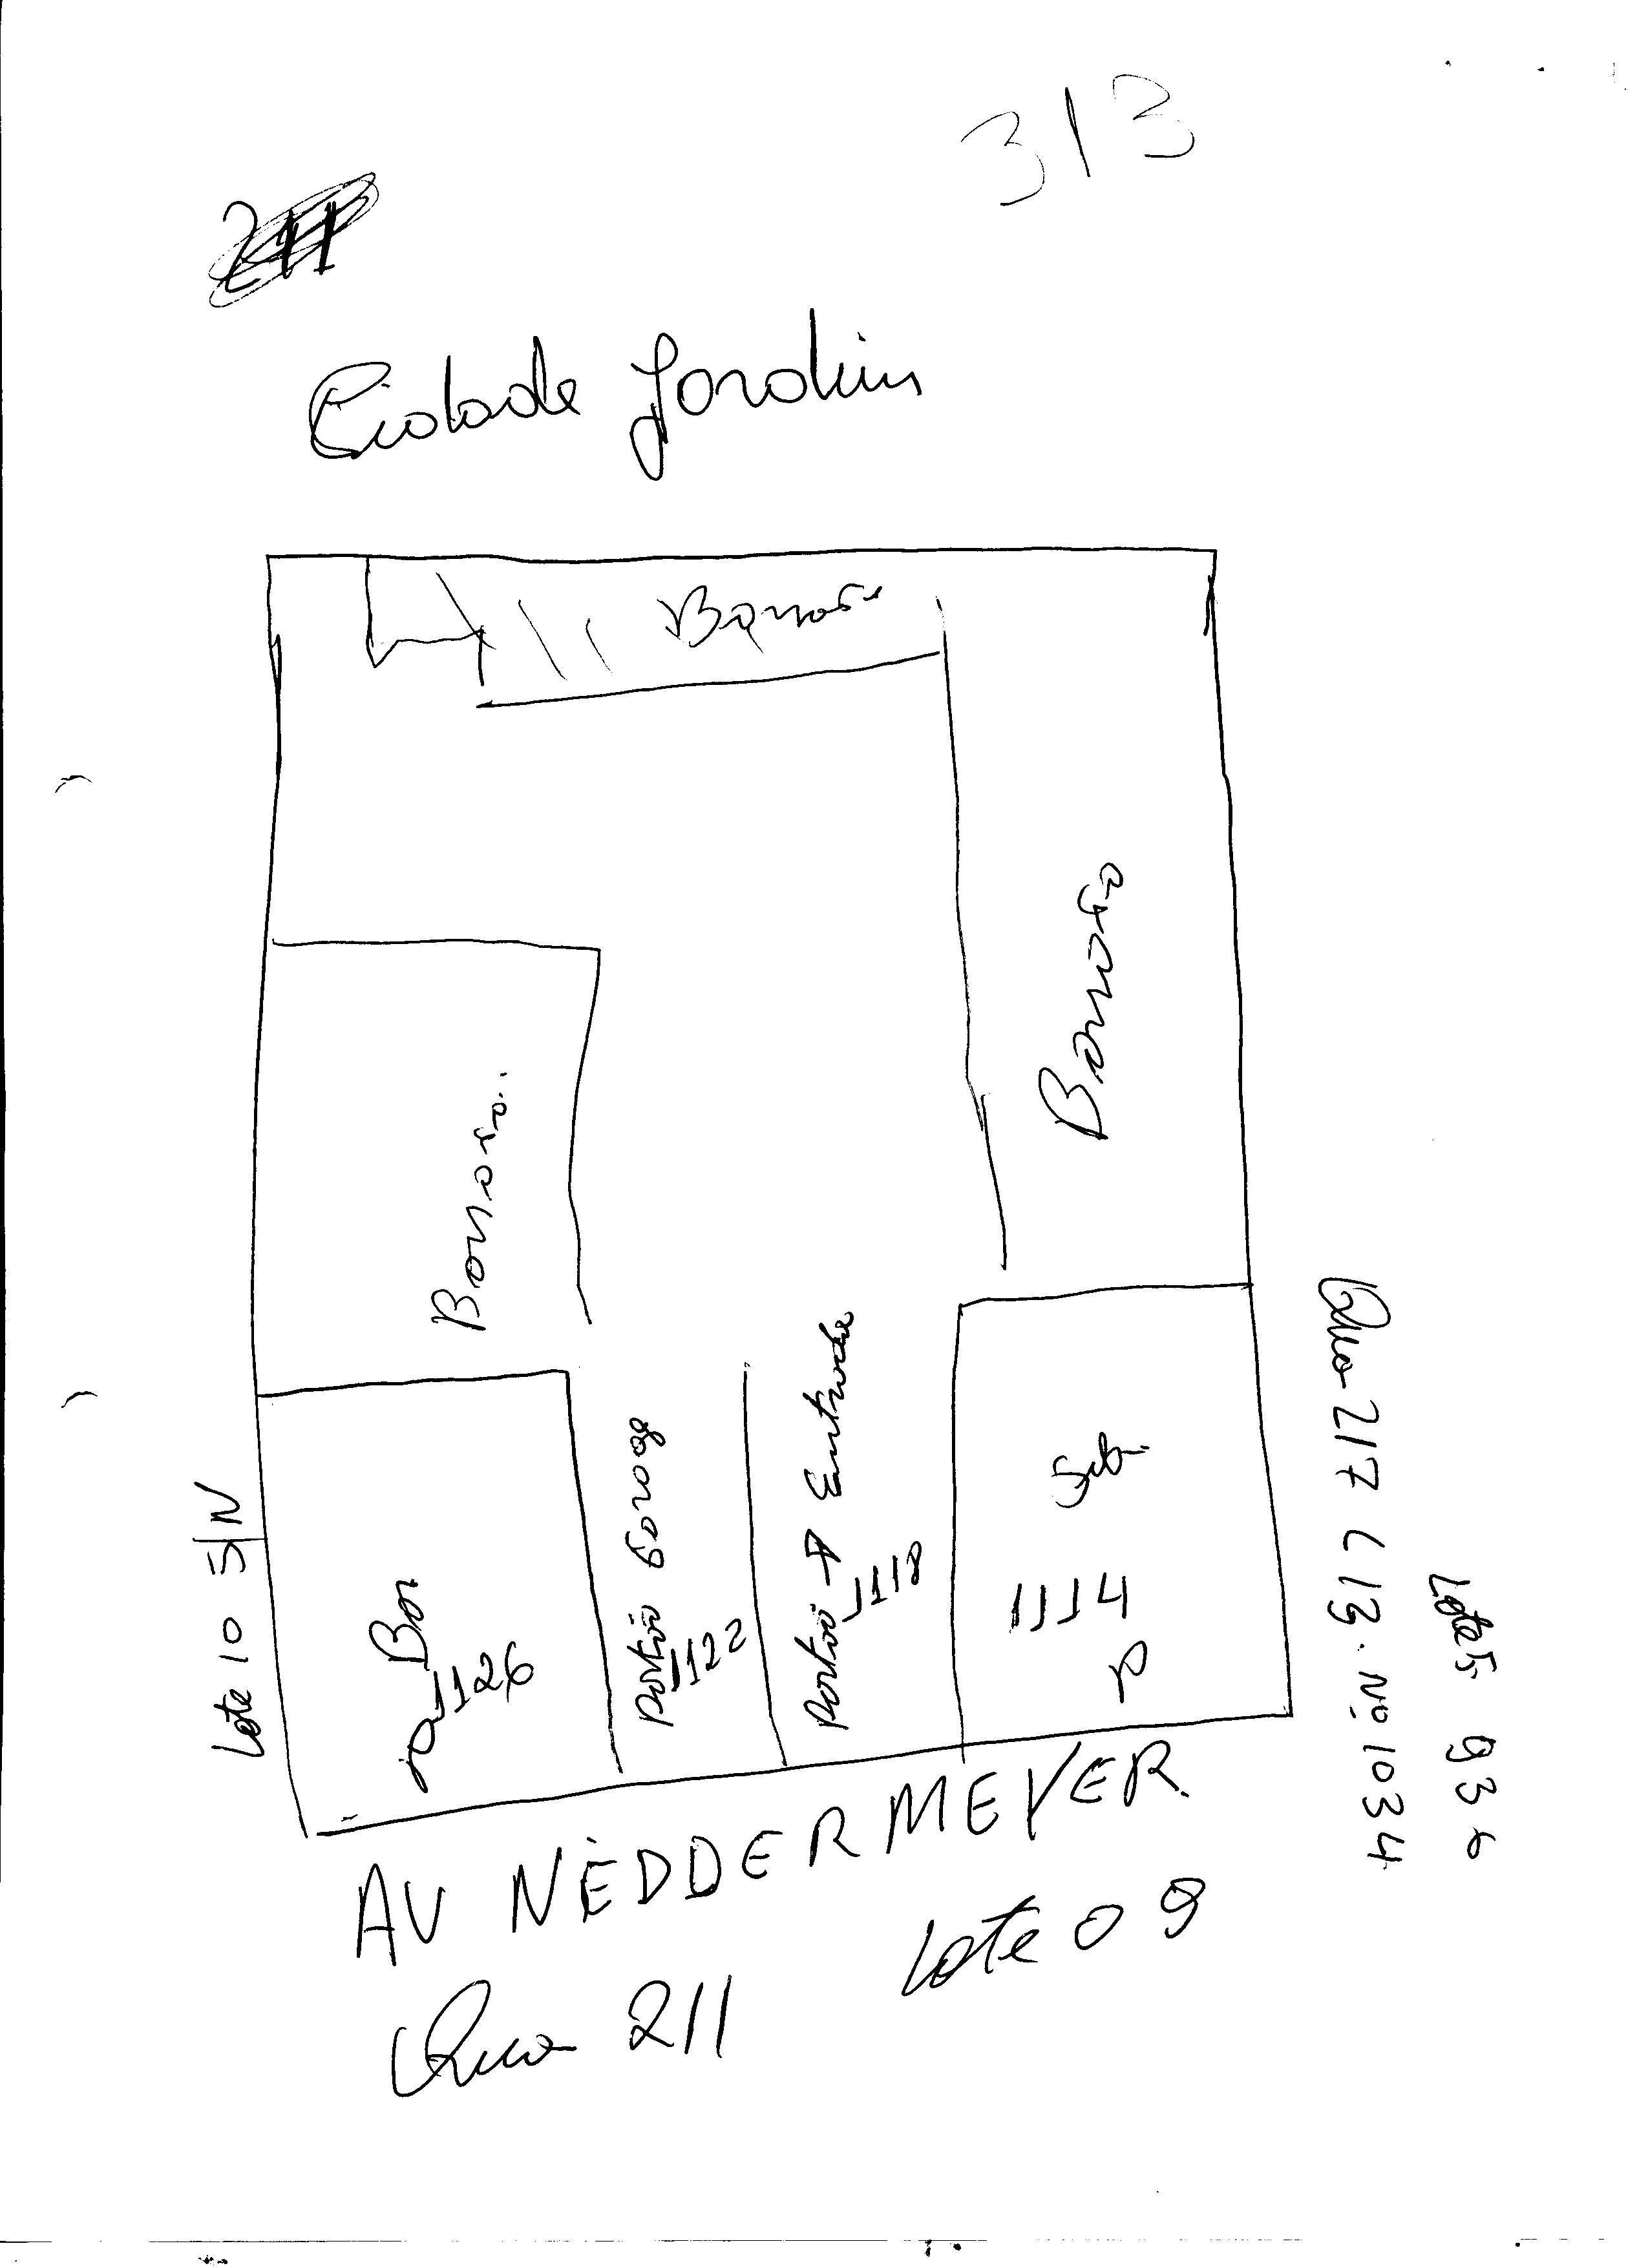 313
211
Cidade Jardim
Barracão
Barracão
Barracão
Lote 10 S/N
Bar
1126
Portão Garage
1122
Portão → Entrada
1118
1114
P
Qua 217 L 13. Nº 1034
Lote 5 936
AV NEDDERMEYER
Lote 09
Qua 211